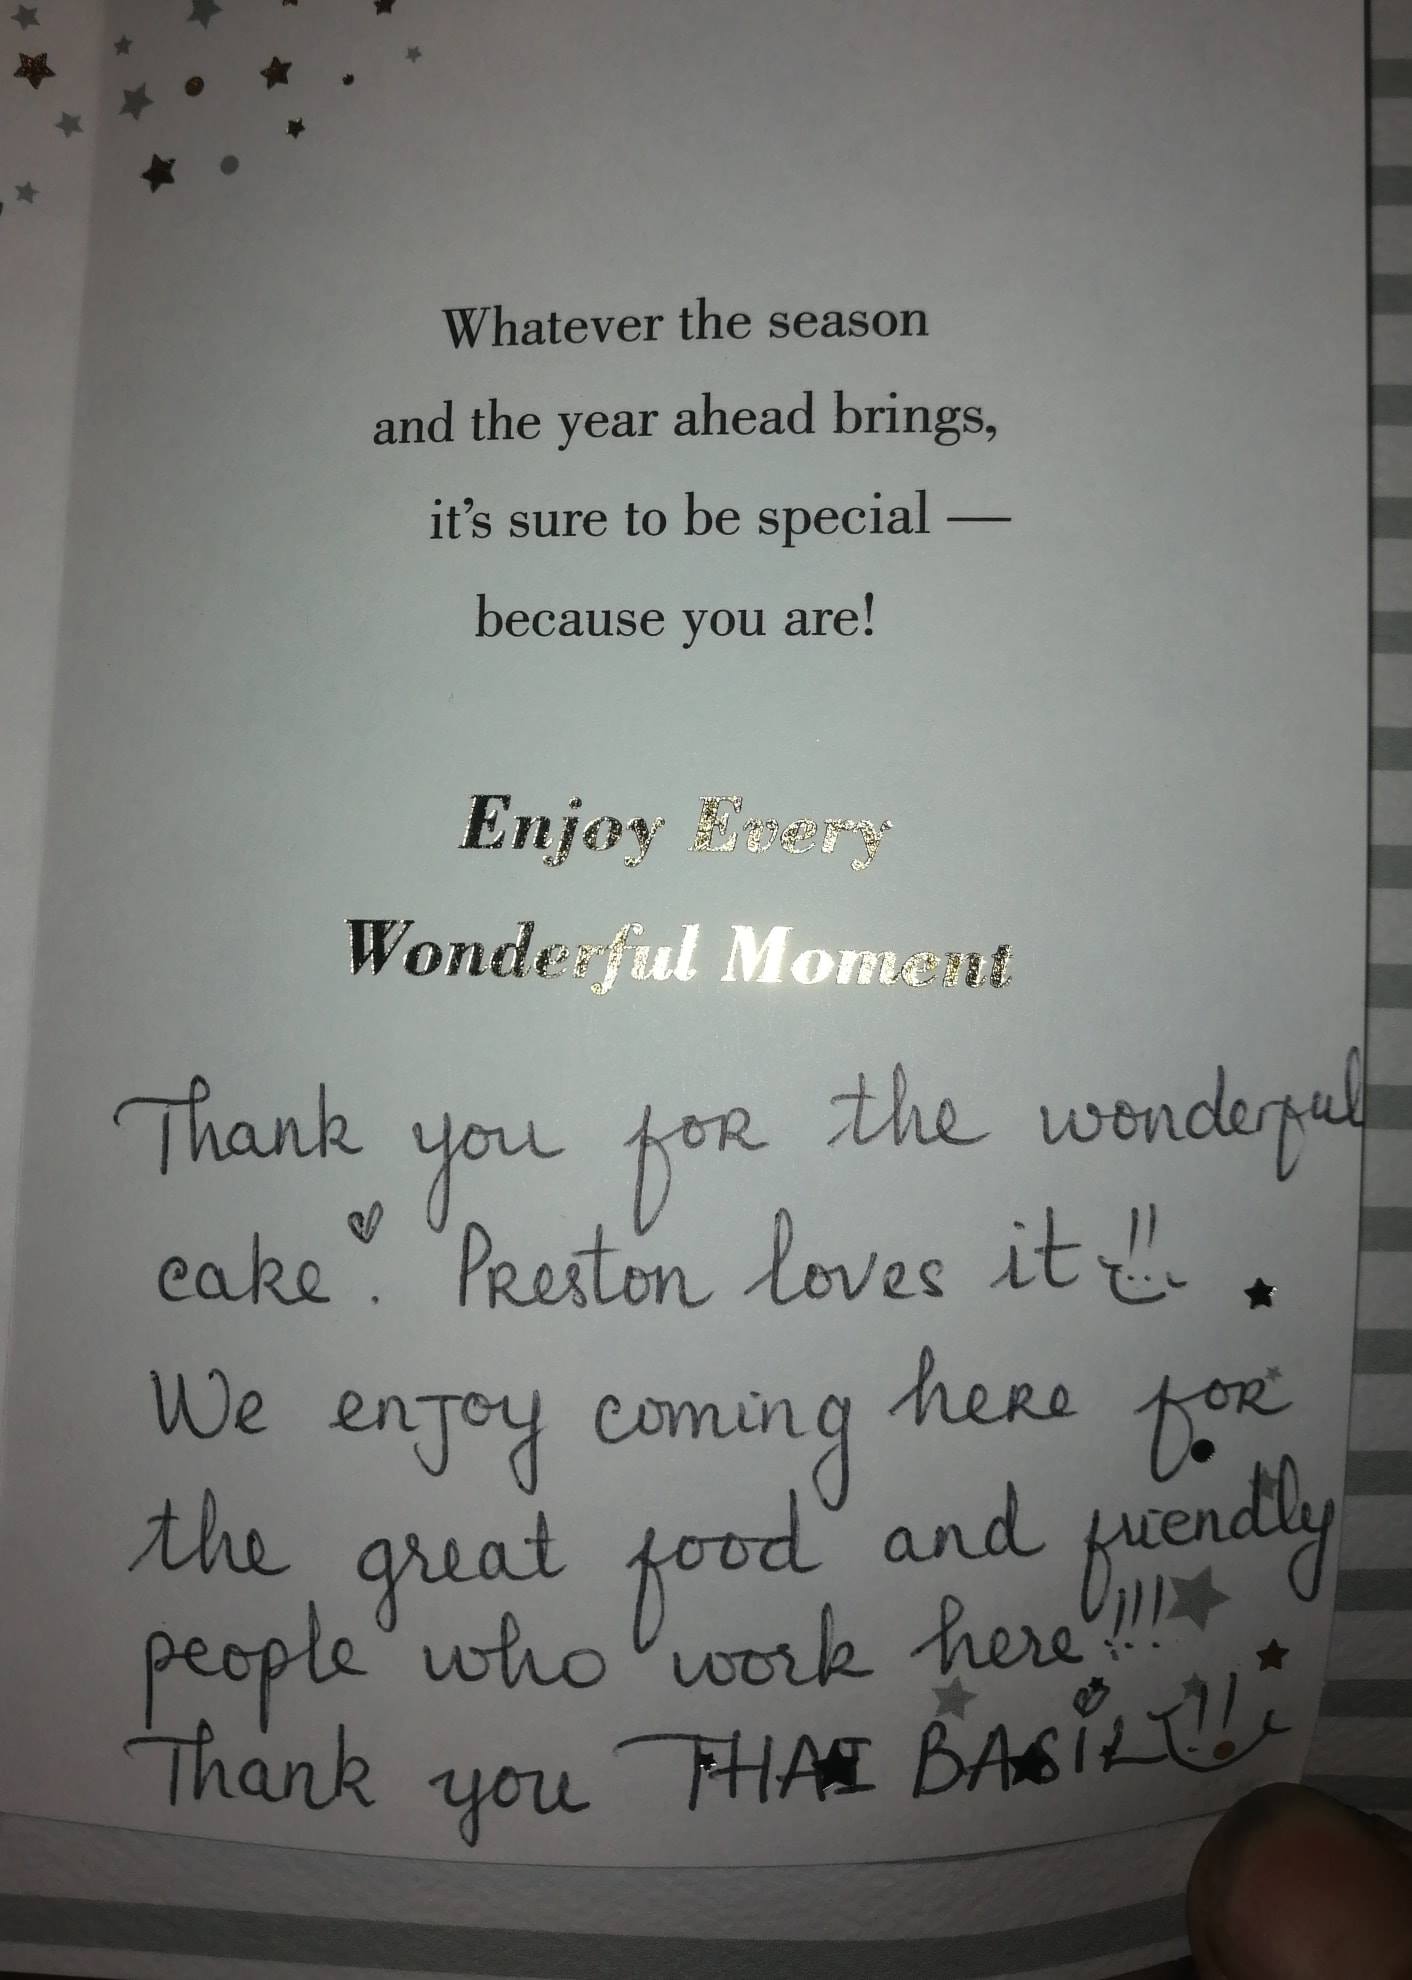 Whatever the season
and the year ahead brings,
it's sure to be special —
because you are!
Enjoy Every
Wonderful Moment
Thank you for the wonderful
cake. Preston loves it!!
We enjoy coming here for
the great food and friendly
people who work here!!!
Thank you THAI BASiL!!